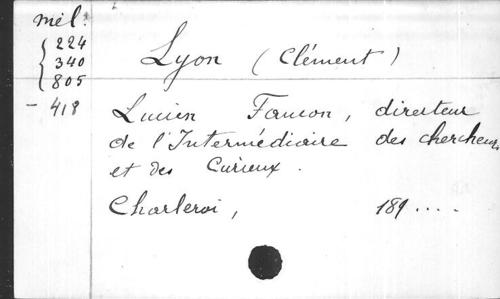 mél.
224
340
805
– 418
Lyon (Clément)
Lucien Faucon, directeur
de l'Intermédiaire des chercheurs
et des Curieux.
Charleroi, 189....